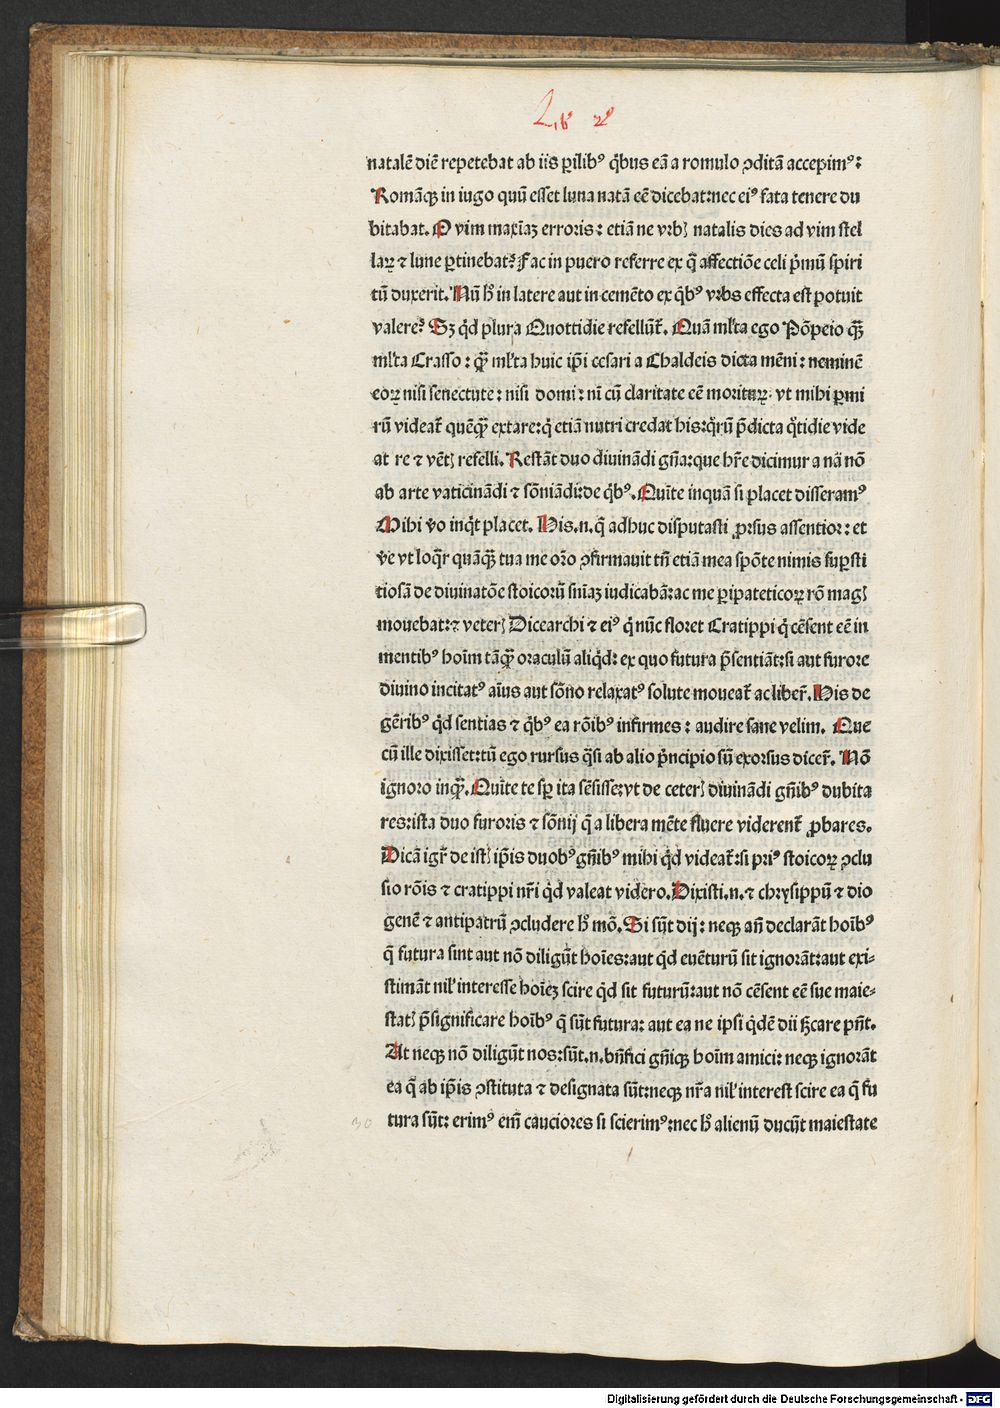 Lib⁹ 2⁹
natalē diē repetebat ab iis ꝑilib⁹ q̇bus eā a romulo ꝯditā accepim⁹:
Romāqꝫ in iugo quū esset luna natā eē dicebat: nec ei⁹ fata tenere du
bitabat. O vim maxīaꝫ erroris: etiā ne vrbꝭ natalis dies ad vim stel
laꝝ ⁊ lune ꝑtinebat? Fac in puero referre ex q̄ affectiōe celi p̄mū spiri
tū duxerit. Nū h̄ in latere aut in cemēto ex q̇b⁹ vrbs effecta est potuit
valere? Sꝫ qd̄ plura Quottidie refellūt̄. Quā ml̄ta ego Pōpeio qꝫ̄
ml̄ta Crasso: qꝫ̄ ml̄ta huic ip̄i cesari a Chaldeis dicta mēni: neminē
eoꝝ nisi senectute: nisi domi: nī cū claritate eē morituꝝ. vt mihi ꝑmi
rū videat̄ quēqꝫ̄ extare: q̇ etiā nūc credat his: qr̄ū p̄dicta q̊tidie vide
at re ⁊ vēt̄ꝭ refelli. Restāt duo diuinādi gn̄a: que hr̄e dicimur a nā nō
ab arte vaticinādi ⁊ sōniādi: de q̇b⁹. Quīte inquā si placet disseram⁹
Mihi v̊o inq̇t placet. His .n. q̄ adhuc disputasti ꝓrsus assentior: et
v̊e vt loqr̄ quāqꝫ̄ tua me orō ꝯfirmauit tn̄ etiā mea spōte nimis suꝑsti
tiosā de diuinatōe stoicorū sn̄iaꝫ iudicabā: ac me ꝑipateticoꝝ rō magꝭ
mouebat: ⁊ veterꝭ Dicearchi ⁊ ei⁹ q̇ nūc floret Cratippi q̇ cēsent eē in
mentib⁹ hoīm tāqꝫ̄ oraculū aliqd̄: ex quo futura p̄sentiāt: si aut furore
diuino incitat⁹ aīus aut sōno relaxat⁹ solute moueat̄ ac liber̄. His de
gēnrib⁹ qd̄ sentias ⁊ q̇b⁹ ea rōib⁹ infirmes: audire sane velim. Que
cū ille dixisset: tū ego rursus q̄si ab alio p̄ncipio sū exorsus dicer̄. Nō
ignoro inqꝫ̄. Quīte te sꝑ ita sēsisse: vt de ceterꝭ diuinādi gn̄ib⁹ dubita
res: ista duo furoris ⁊ sōnij q̄ a libera mēte fluere viderent̄ ꝓbares.
Dicā igr̄ de istꝭ ip̄is duob⁹ gn̄ib⁹ mihi qd̄ videat̄: si pri⁹ stoicoꝝ ꝯclu
sio rōis ⁊ cratippi nr̄i qd̄ valeat videro. Dixisti .n. ⁊ chrysippū ⁊ dio
genē ⁊ antipatrū ꝯcludere h̄ mō. Si sūt dij: neqꝫ an̄ declarāt hoīb⁹
q̄ futura sint aut nō diligūt hoīes: aut qd̄ euēturū sit ignorāt: aut exi-
stimāt nil' interesse hoīeꝫ scire qd̄ sit futurū: aut nō cēsent eē sue maie-
statꝭ p̄significare hoīb⁹ q̄ sūt futura: aut ea ne ipsi qd̄ē dii ſꝫcare pn̄t.
At neqꝫ nō diligūt nos: sūt .n. bn̄fici gn̄iqꝫ hoīm amici: neqꝫ ignorāt
ea q̄ ab ip̄is ꝯstituta ⁊ designata sūt: neqꝫ nr̄a nil' interest scire ea q̄ fu
tura sūt: erim⁹ em̄ cauciores si scierim⁹: nec h̄ alienū ducūt maiestate
30
Digitalisierung gefördert durch die Deutsche Forschungsgemeinschaft - DFG